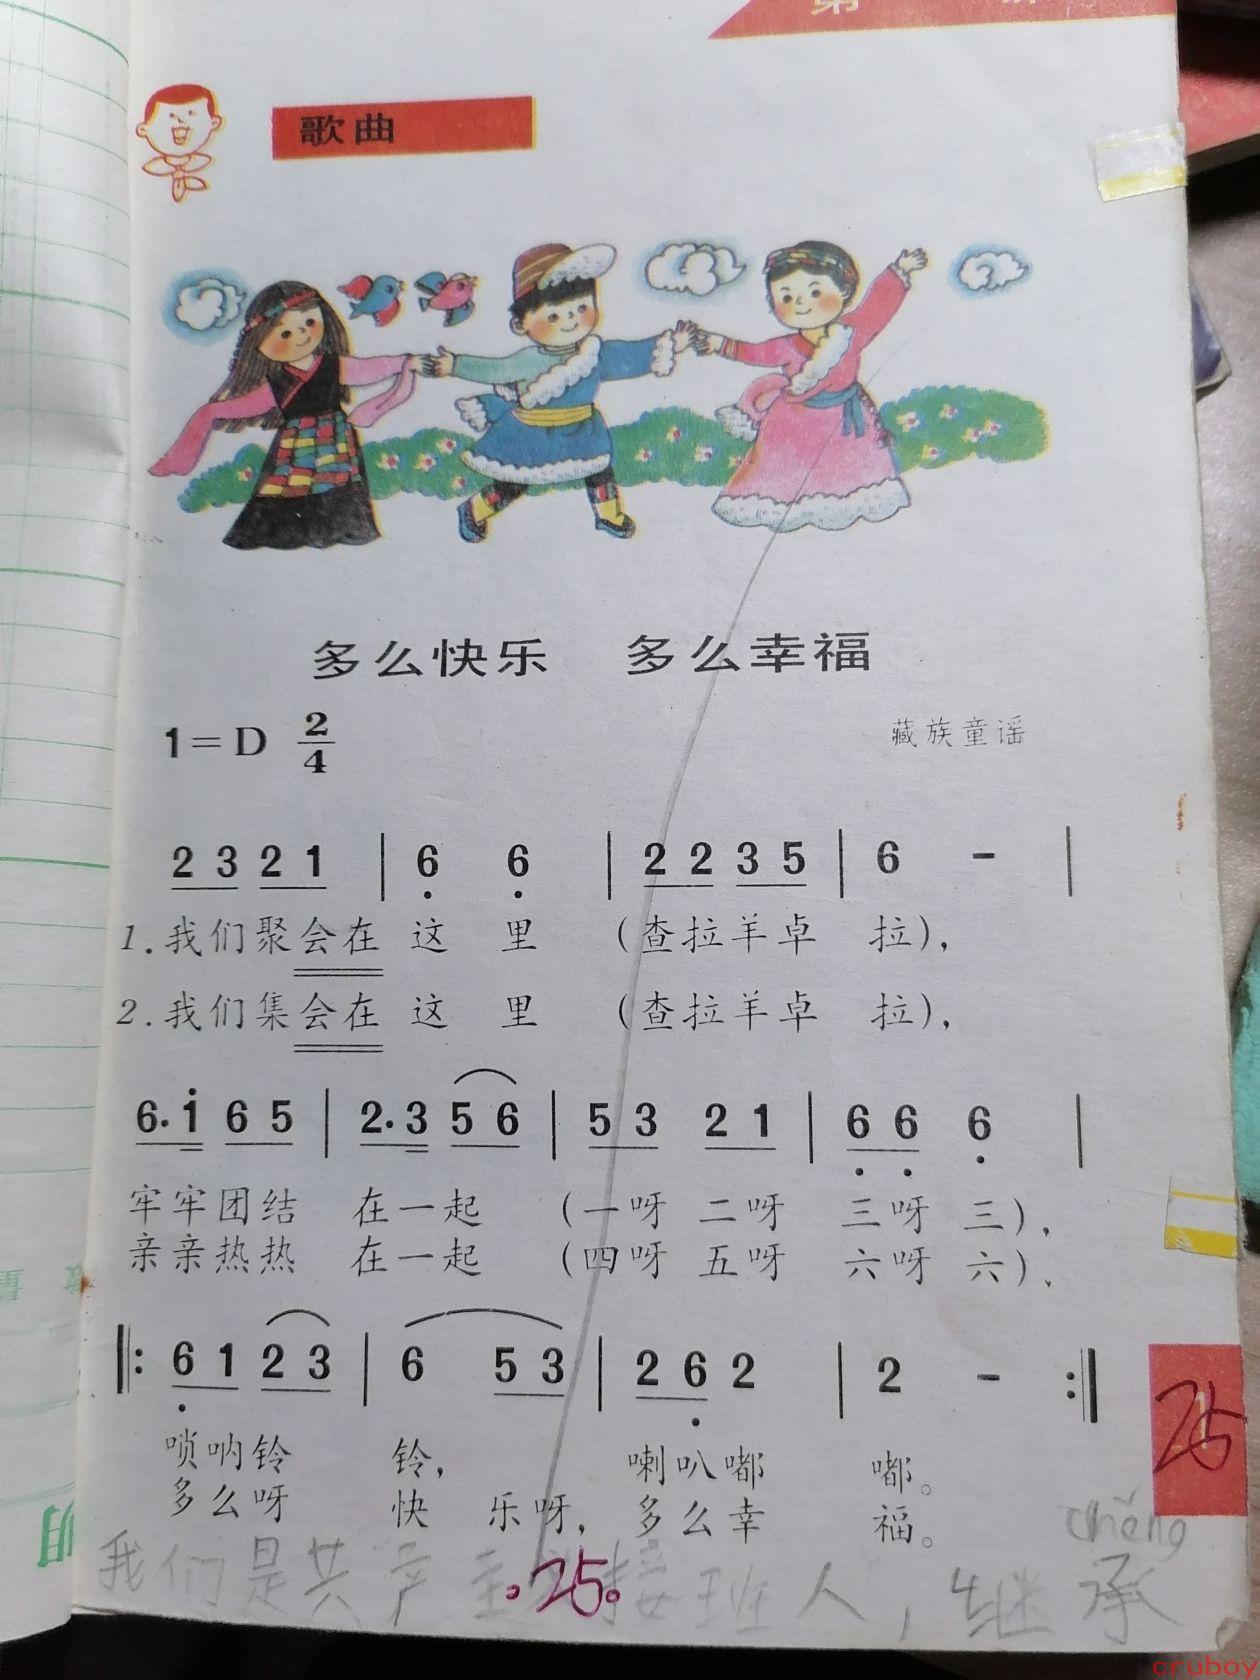 第
歌曲
多么快乐 多么幸福
1=D 2/4
藏族童谣
2 3 2 1 | 6 6 | 2 2 3 5 | 6 - |
1.我们聚会在 这 里 (查拉羊卓 拉),
2.我们集会在 这 里 (查拉羊卓 拉),
6. 1 6 5 | 2. 3 5 6 | 5 3 2 1 | 6 6 6 |
牢牢团结 在一起 (一呀 二呀 三呀 三),
亲亲热热 在一起 (四呀 五呀 六呀 六)、
‖: 6 1 2 3 | 6 5 3 | 2 6 2 | 2 - :‖
唢呐铃 铃, 喇叭嘟 嘟。
多么呀 快 乐呀, 多么幸 福。
25
1
chéng
我们是共产主 接班人,继承
.25.
明
cruboy